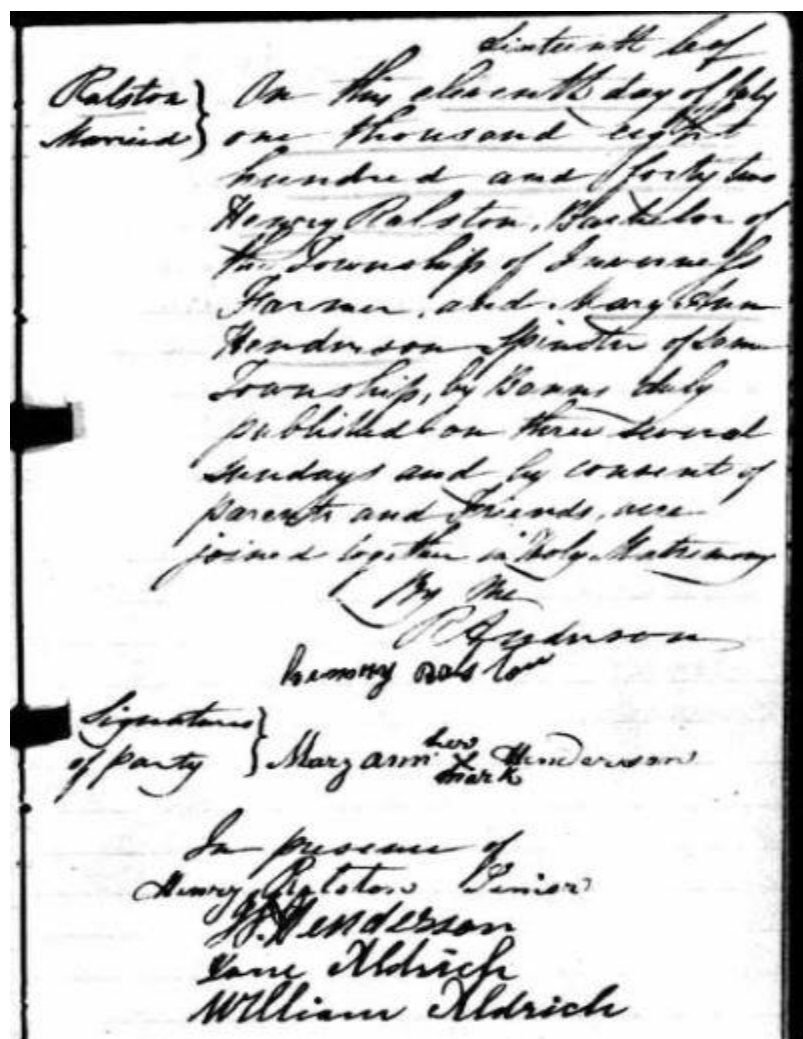 Sixteenth leaf
Ralston Married } On this eleventh day of July
one thousand eight
hundred and forty two
Henry Ralston, Bachelor of
the Township of Inverness
Farmer, and Mary Ann
Henderson Spinster of same
Township, by Banns duly
published on three several
Sundays and by consent of
parents and Friends, were
joined together in Holy Matrimony
By Me
R Anderson
henrry
Signatures of party } Maryann her X mark Henderson
In presence of
Henry Ralston Senior
Henderson
Jane Aldrich
William Aldrich